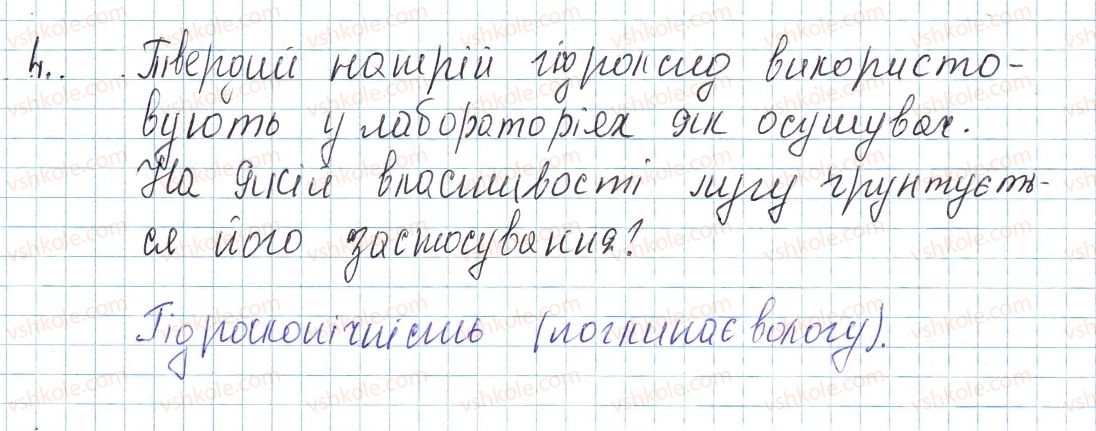 4.. Твердий натрій гідроксид використо-
вують у лабораторіях як осушувач.
На якій властивості лугу ґрунтуєть-
ся його застосування?
Гідроскопічність (поглинає вологу).